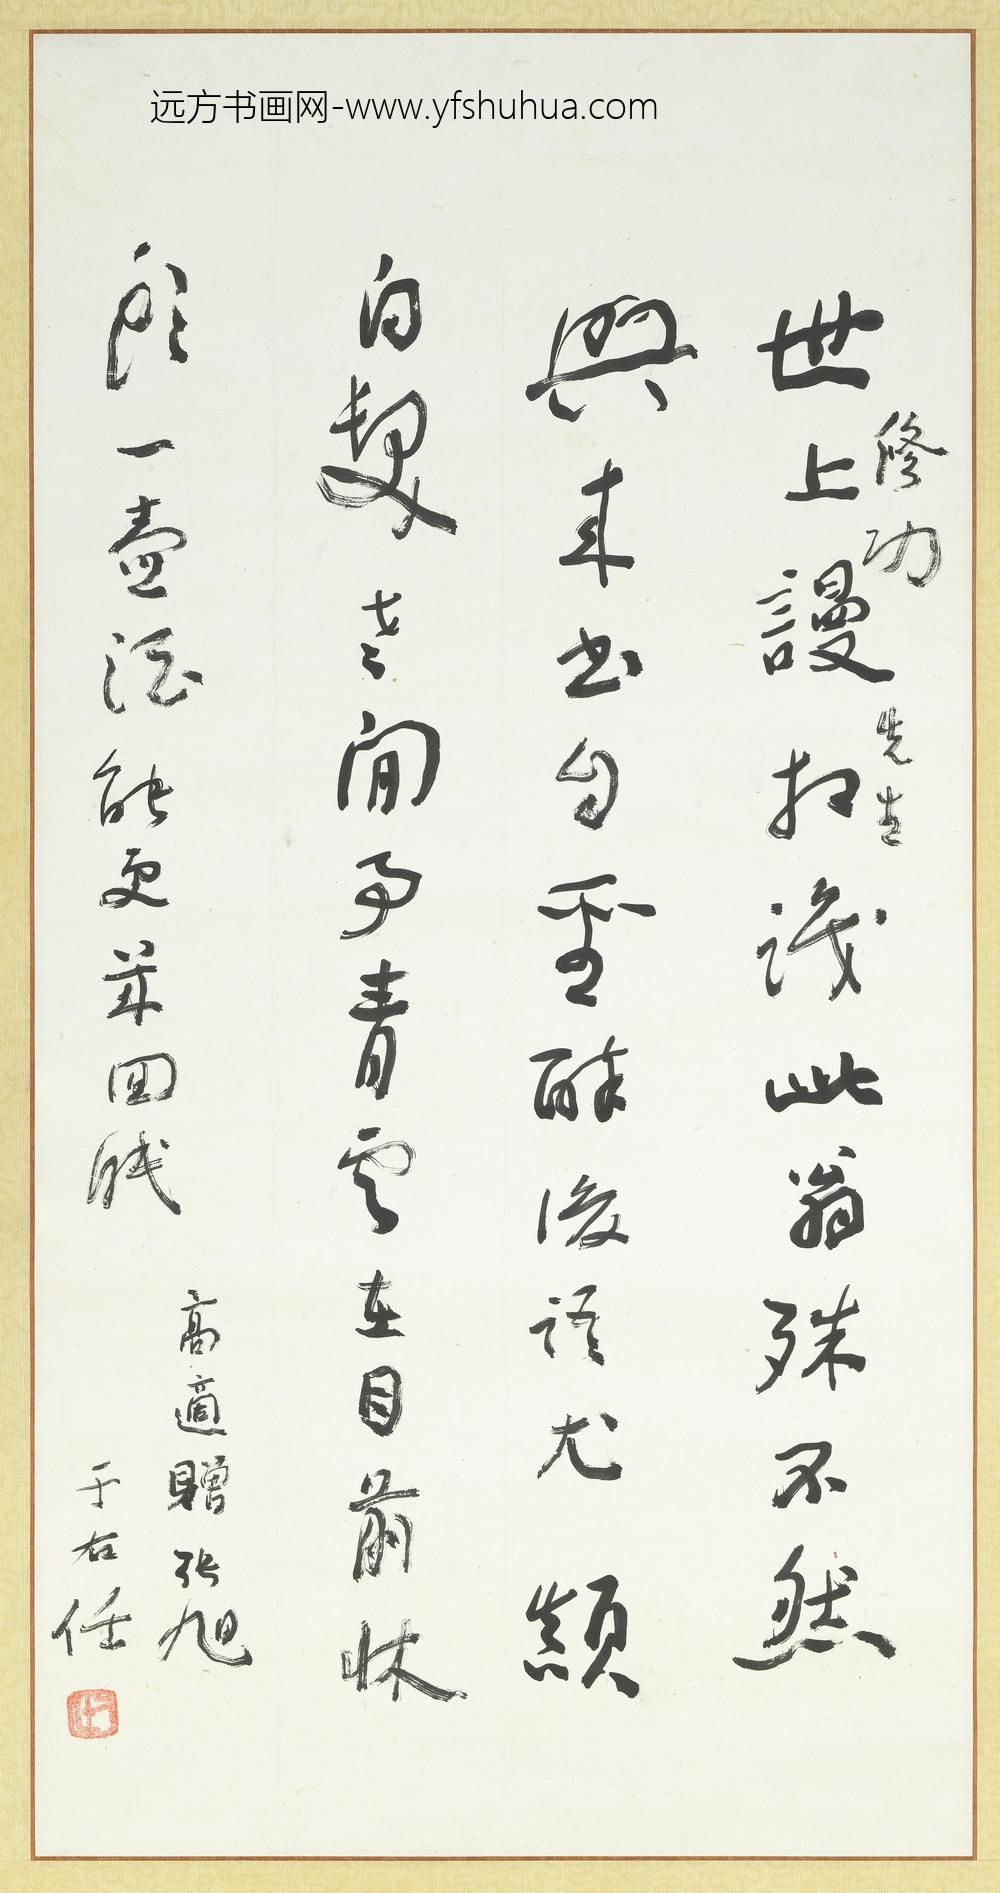 远方书画网-www.yfshuhua.com
修功先生
世上謾相識此翁殊不然
興來書自聖醉後語尤顛
白髮老閒事青雲在目前牀
頭一壺酒能更幾回眠
高適贈張旭
于右任